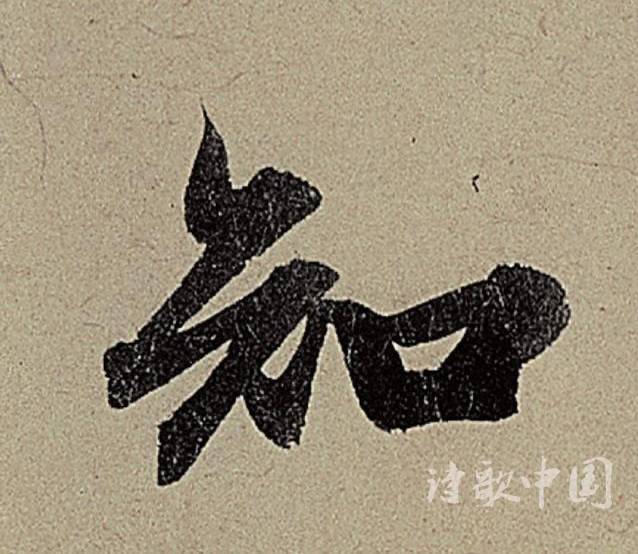 知
诗歌中国